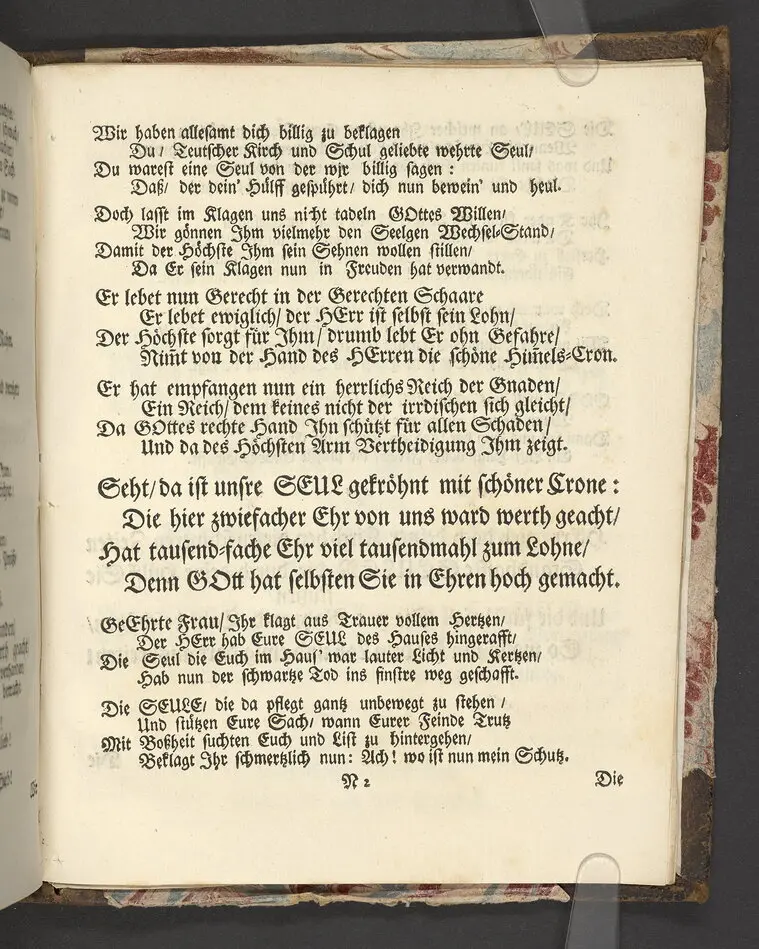 Wir haben allesamt dich billig zu beklagen
Du / Teutscher Kirch und Schul geliebte wehrte Seul/
Du warest eine Seul von der wir billig sagen :
Daß/ der dein' Hülff gespührt/ dich nun bewein' und heul.
Doch lasst im Klagen uns nicht tadeln GOttes Willen/
Wir gönnen Ihm vielmehr den Seelgen Wechsel-Stand/
Damit der Höchste Ihm sein Sehnen wollen stillen/
Da Er sein Klagen nun in Freuden hat verwandt.
Er lebet nun Gerecht in der Gerechten Schaare
Er lebet ewiglich/ der HErr ist selbst sein Lohn/
Der Höchste sorgt für Ihm/ drumb lebt Er ohn Gefahre/
Nim̃t von der Hand des HErren die schöne Him̃els-Cron.
Er hat empfangen nun ein herrlichs Reich der Gnaden/
Ein Reich/ dem keines nicht der irrdischen sich gleicht/
Da GOttes rechte Hand Ihn schützt für allen Schaden/
Und da des Höchsten Arm Vertheidigung Ihm zeigt.
Seht/ da ist unsre SEUL gekröhnt mit schöner Crone :
Die hier zwiefacher Ehr von uns ward werth geacht/
Hat tausend-fache Ehr viel tausendmahl zum Lohne/
Denn GOtt hat selbsten Sie in Ehren hoch gemacht.
GeEhrte Frau/ Ihr klagt aus Trauer vollem Hertzen/
Der HErr hab Eure SEUL des Hauses hingerafft/
Die Seul die Euch im Haus' war lauter Licht und Kertzen/
Hab nun der schwartze Tod ins finstre weg geschafft.
Die SEULE/ die da pflegt gantz unbewegt zu stehen /
Und stützen Eure Sach/ wann Eurer Feinde Trutz
Mit Boßheit suchten Euch und List zu hintergehen/
Beklagt Ihr schmertzlich nun: Ach! wo ist nun mein Schutz.
N 2
Die